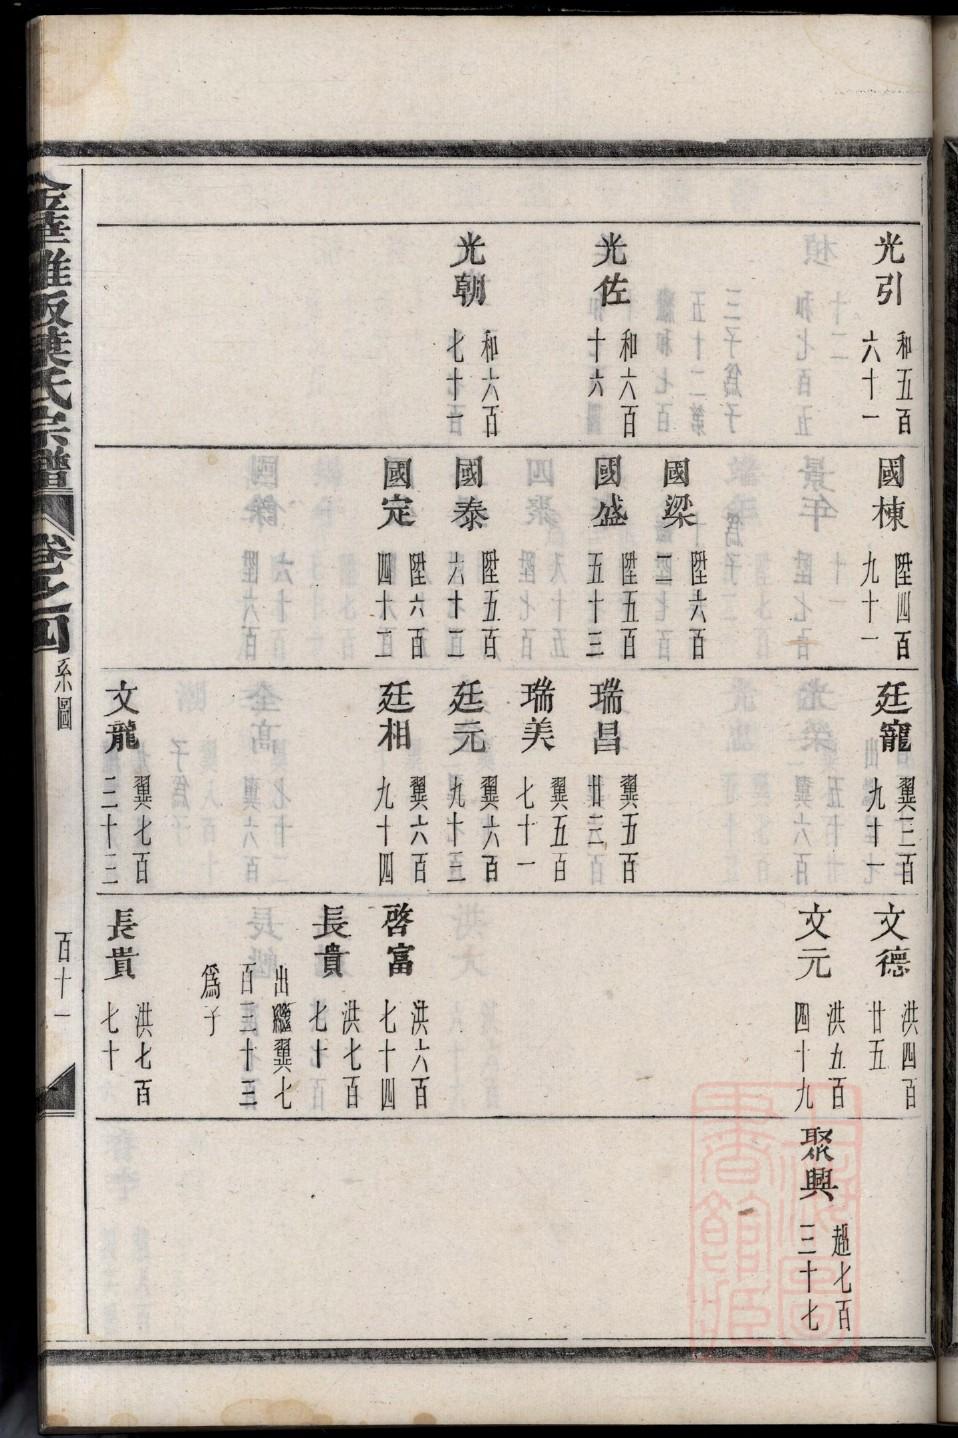 光引 和五百六十一
光佐 和六百十六
光朝 和六百七十一
國棟 陞四百九十一
國梁 陞六百二
國盛 陞五百五十三
國泰 陞五百六十二
國定 陞六百四十二
廷寵 翼三百九十一
瑞昌 翼五百廿三
瑞美 翼五百七十一
廷元 翼六百九十三
廷相 翼六百九十四
文龍 翼七百二十三
文德 洪四百廿五
文元 洪五百四十九
啓富 洪六百七十四
長貴 洪七百七十
出繼翼七百二十三
爲子
長貴 洪七百七十
聚興 趙七百三十七
氏宗譜
卷之四
系圖
百十一